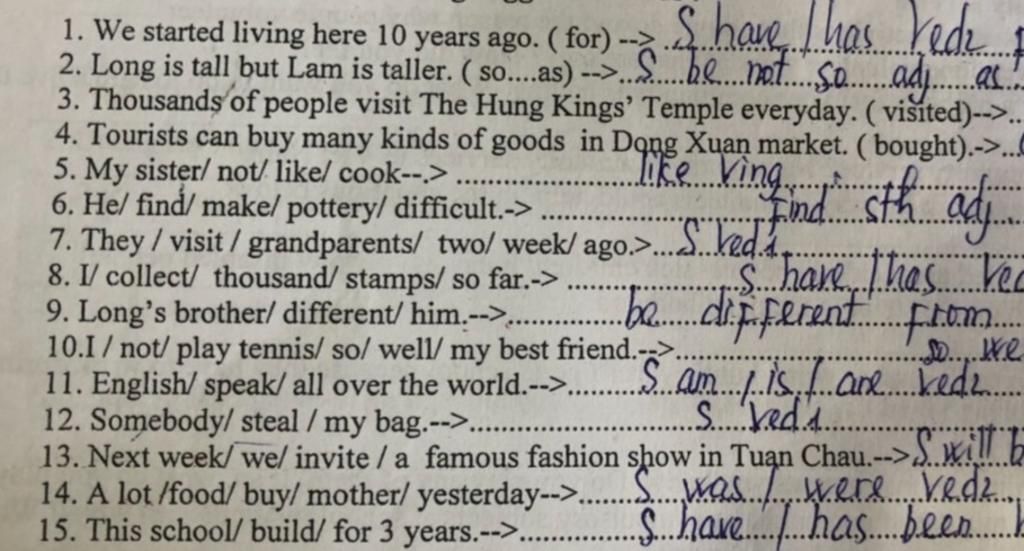 1. We started living here 10 years ago. ( for) --> S have / has Ved2
2. Long is tall but Lam is taller. ( so....as) -->.. S be not so adj as
3. Thousands of people visit The Hung Kings’ Temple everyday. ( visited)-->..
4. Tourists can buy many kinds of goods in Dong Xuan market. ( bought).->...
5. My sister/ not/ like/ cook--.> like Ving
6. He/ find/ make/ pottery/ difficult.-> Find sth adj
7. They / visit / grandparents/ two/ week/ ago.>... S Ved1
8. I/ collect/ thousand/ stamps/ so far.-> S have / has Ved
9. Long’s brother/ different/ him.--> be different from
10.I / not/ play tennis/ so/ well/ my best friend.--> so we
11. English/ speak/ all over the world.--> S am / is / are Ved2
12. Somebody/ steal / my bag.--> S Ved1
13. Next week/ we/ invite / a famous fashion show in Tuan Chau.--> S will b
14. A lot /food/ buy/ mother/ yesterday--> S was / were Ved2
15. This school/ build/ for 3 years.--> S have / has been